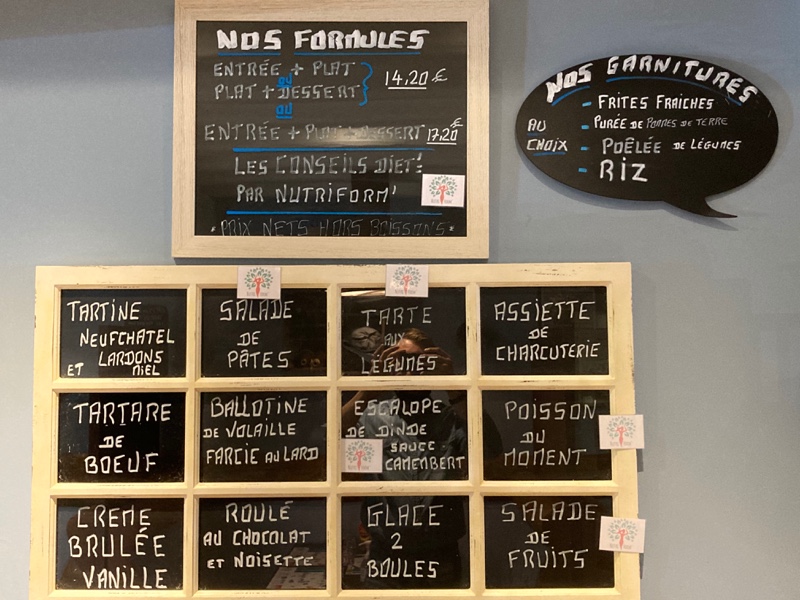 NOS FORMULES
ENTRÉE + PLAT
OU
PLAT + DESSERT
14,20 €
OU
ENTRÉE + PLAT + DESSERT 17,20 €
LES CONSEILS DIET!
PAR NUTRIFORM'
* PRIX NETS HORS BOISSONS *
NOS GARNITURES
AU CHOIX
- FRITES FRAICHES
- PURÉE DE POMMES DE TERRE
- POÊLÉE DE LÉGUMES
- RIZ
TARTINE
NEUFCHATEL
LARDONS
ET MIEL
SALADE
DE
PÂTES
TARTE
AUX
LÉGUMES
ASSIETTE
DE
CHARCUTERIE
TARTARE
DE
BOEUF
BALLOTINE
DE VOLAILLE
FARCIE AU LARD
ESCALOPE
DE DINDE
SAUCE
CAMEMBERT
POISSON
DU
MOMENT
CREME
BRULÉE
VANILLE
ROULÉ
AU CHOCOLAT
ET NOISETTE
GLACE
2
BOULES
SALADE
DE
FRUITS